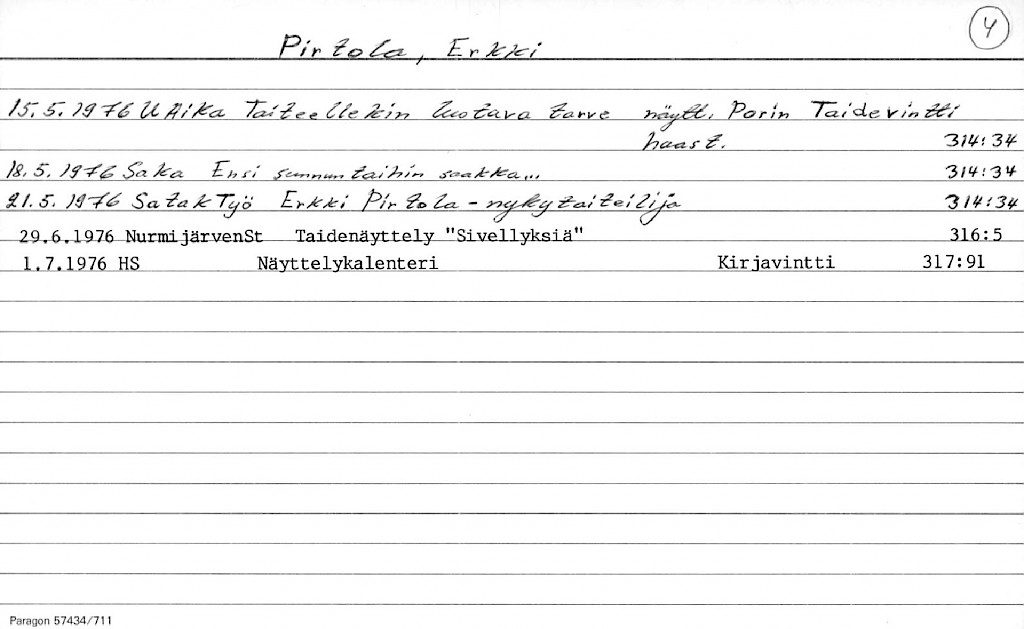 4
Pirtola, Erkki
15.5.1976 U Aika Taiteellekin luotava tarve näytt. Porin Taidevintti
haast. 314:34
18.5.1976 SaKa Ensi sunnuntaihin saakka... 314:34
21.5.1976 SatakTyö Erkki Pirtola - nykytaiteilija 314:34
29.6.1976 NurmijärvenSt Taidenäyttely "Sivellyksiä" 316:5
1.7.1976 HS Näyttelykalenteri Kirjavintti 317:91
Paragon 57434/711